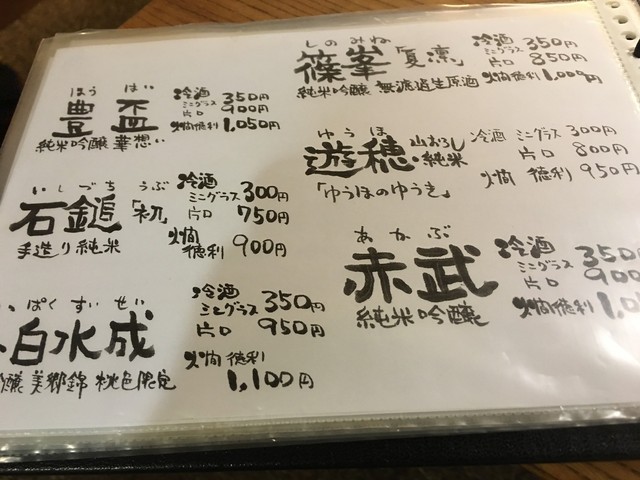 ほうはい
豊盃
純米吟醸 華想い
冷酒
ミニグラス 350円
片口 900円
火燗徳利 1,050円
いしづち うぶ
石鎚「初」
手造り純米
冷酒
ミニグラス 300円
片口 750円
火燗
徳利 900円
っぱくすいせい
白水成
吟醸 美郷錦 桃色限定
冷酒
ミニグラス 350円
片口 950円
火燗 徳利
1,100円
しのみね
篠峯「夏凛」
純米吟醸 無濾過生原酒
冷酒
ミニグラス 350円
片口 850円
火燗徳利 1,000円
ゆうほ
遊穂 山おろし
純米
「ゆうほのゆうき」
冷酒 ミニグラス 300円
片口 800円
火燗 徳利 950円
あかぶ
赤武
純米吟醸
冷酒
ミニグラス 350
片口 900
火燗徳利 1,0